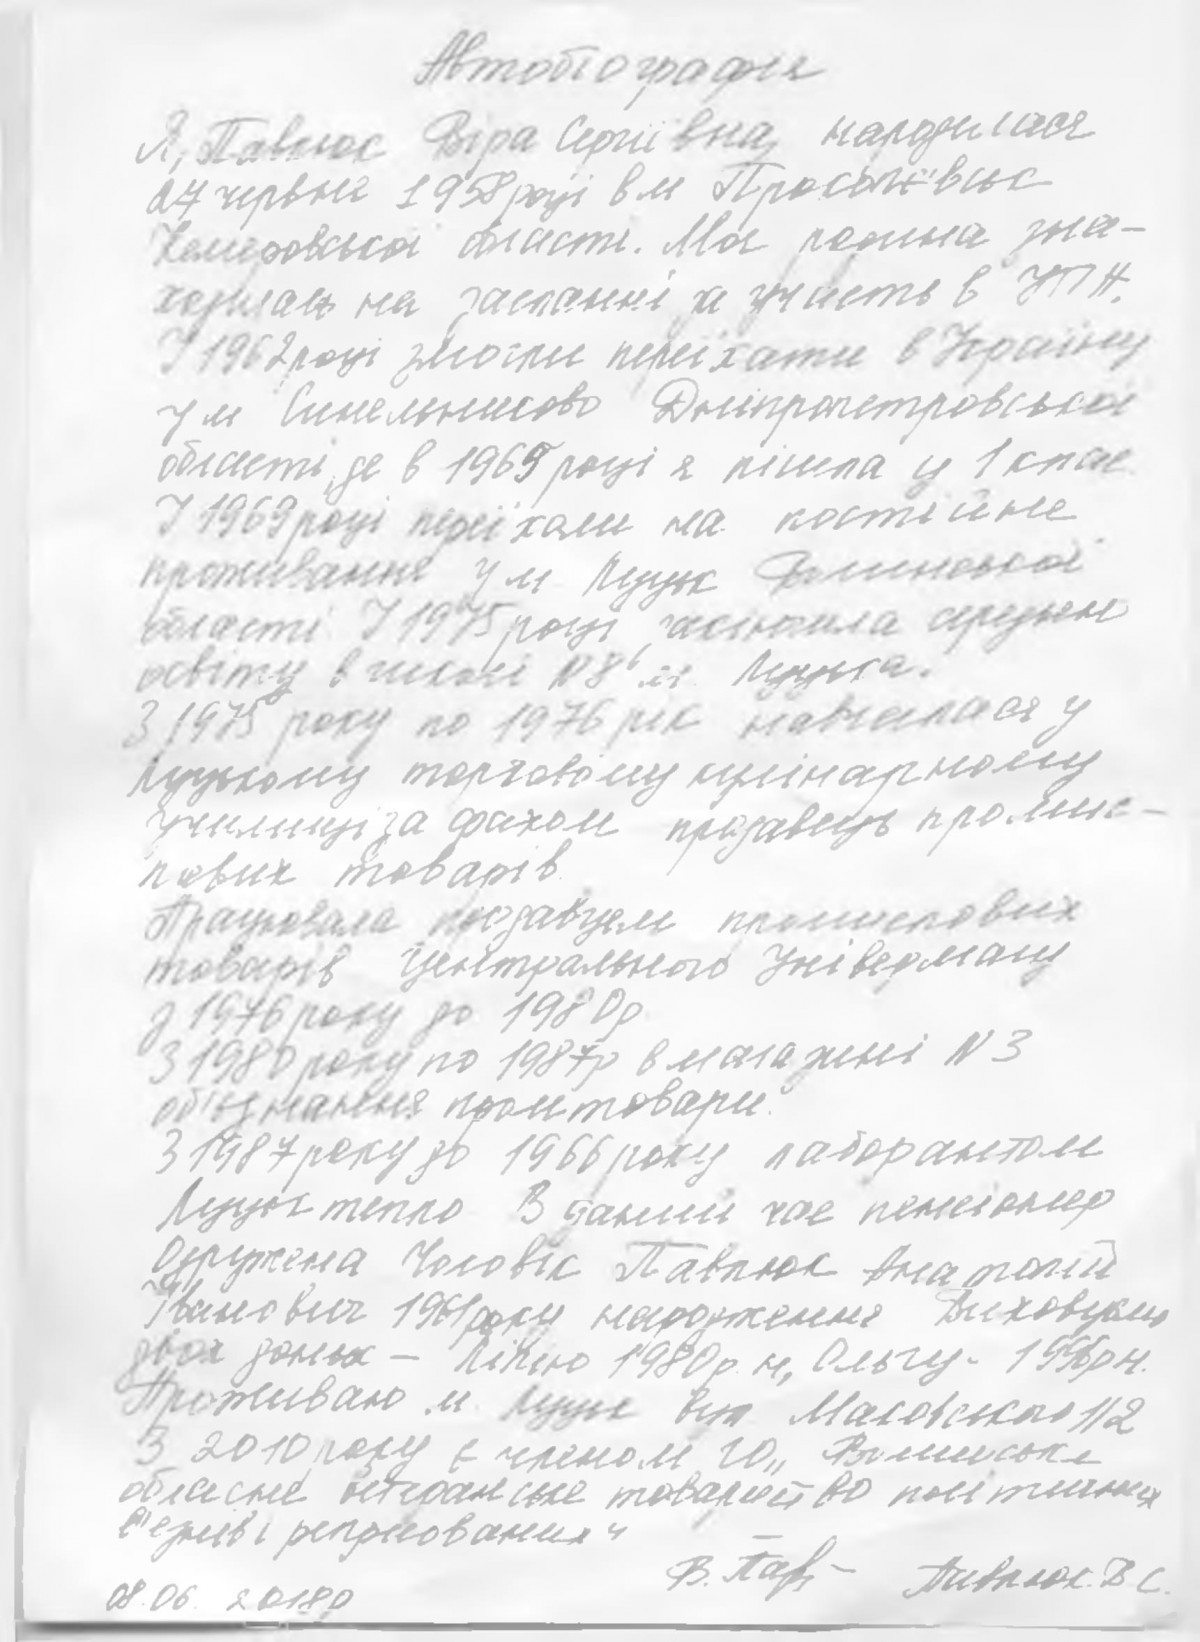 Автобіографія
Я, Павлюк Віра Сергіївна, народилася
27 червня 1958 році в м Прокопєвськ
Кемеровської області. Моя родина зна-
ходилась на засланні за участь в УПА.
У 1962 році змогли переїхати в Україну
у м Синельниково Дніпропетровської
області, де в 1965 році я пішла у 1 клас.
У 1969 році переїхали на постійне
проживання у м Луцьк Волинської
області. У 1975 році закінчила середню
освіту в школі №8 м. Луцька.
З 1975 року по 1976 рік навчалася у
Луцькому торговому кулінарному
училищі за фахом продавець промис-
лових товарів.
Працювала продавцем промислових
товарів Центрального Універмагу
з 1976 року до 1980р.
З 1980 року по 1987р в магазині №3
об'єднання промтовари.
З 1987 року до 1966 року лаборантом
Луцьк тепло. В даний час пенсіонер
Одружена Чоловік Павлюк Анатолій
Іванович 1961 року народження Виховуємо
двох доньок – Лілію 1980р.н, Ольгу - 1996рн.
Проживаю м. Луцьк вул 112
З 2010 року є членом ГО „Волинське
обласне ветеранське товариство політичних
в'язнів і репресованих"
В. Пав Павлюк. В С.
08.06. 2018р